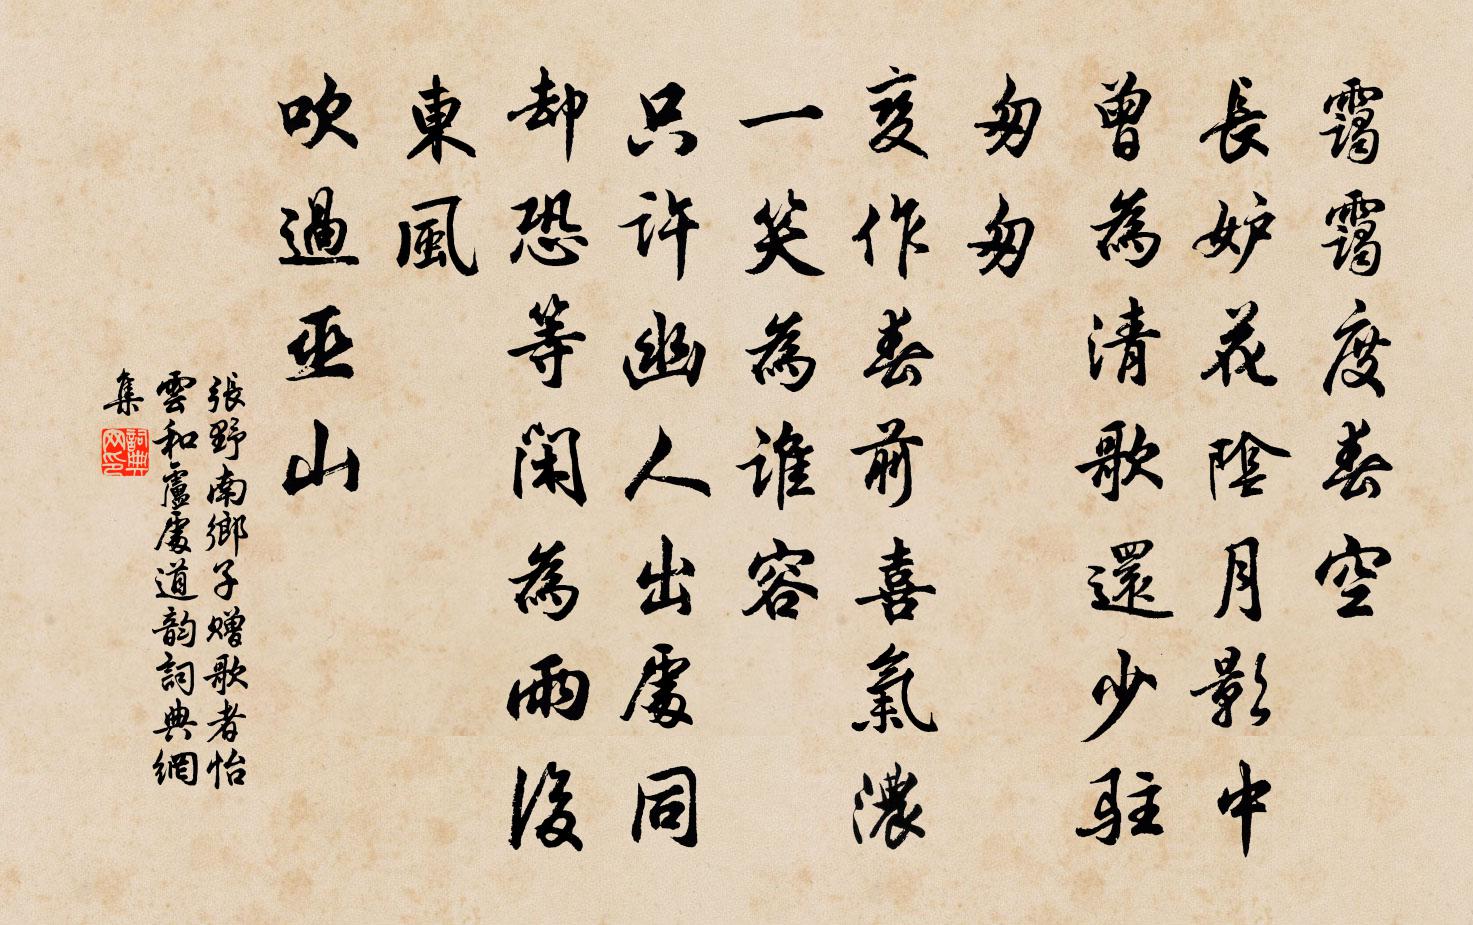 靄靄度春空
長妒花陰月影中
曾為清歌還少駐
匆匆
變作春前喜氣濃
一笑為誰容
只許幽人出處同
却恐等閑為雨後
東風
吹過巫山
張野南鄉子贈歌者怡
雲和盧處道韵詞典網
集
詞典
网印